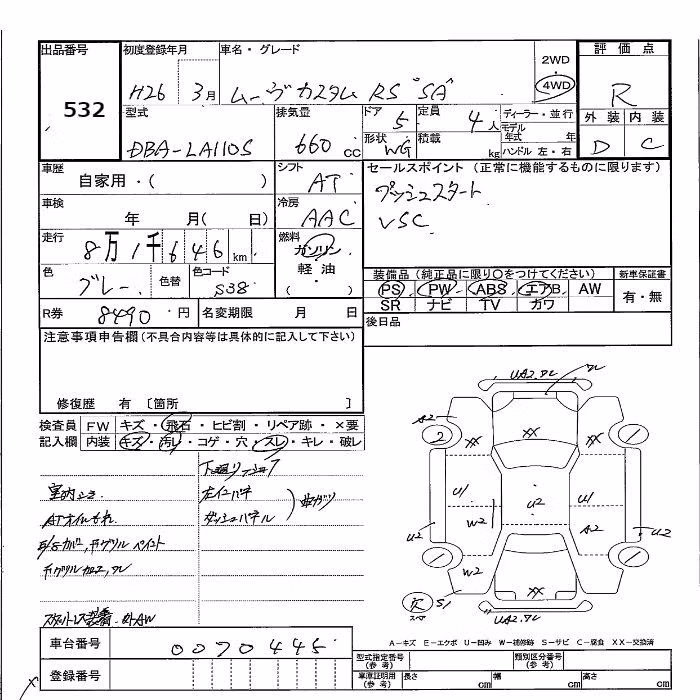 出品番号 初度登録年月 車名・グレード 2WD 評価点
532 H26 3月 ムーヴカスタム RS "SA" 4WD R
型式 排気量 ドア 定員 ディーラー・並行 外装 内装
DBA-LA110S 660cc 5 4人 モデル年式 年 D C
形状 WG 積載 kg ハンドル 左・右
車歴 シフト セールスポイント (正常に機能するものに限ります)
自家用・( ) AT プッシュスタート
車検 冷房 VSC
年 月( 日) AAC
走行 燃料
8万1千646km ガソリン
色 色替 色コード 軽油
グレー S38 ・( )
装備品 (純正品に限り○をつけてください) 新車保証書
PS PW ABS エアB AW 有・無
SR ナビ TV カワ
R券 8490・円 名変期限 月 日 後日品
注意事項申告欄 (不具合内容等は具体的に記入して下さい)
修復歴 有 〔箇所 〕
検査員 FW キズ・飛石・ヒビ割・リペア跡・×要
記入欄 内装 キズ・汚レ・コゲ・穴・スレ・キレ・破レ
室内
ATオイルもれ
ペイント
ダッシュパネル
UA2.ワレ ワレ
A2 XX XX XX
2 U1 U2 U1
U2 W2 A2 U2
W2 XX
S1 スペア
UA2.ワレ
A-キズ E-エクボ U-凹み W-補修跡 S-サビ C-腐食 XX-交換済
車台番号 0070445
登録番号
型式指定番号 (参考) 類別区分番号 (参考)
車庫証明用 (参考) 長さ cm 幅 cm 高さ cm